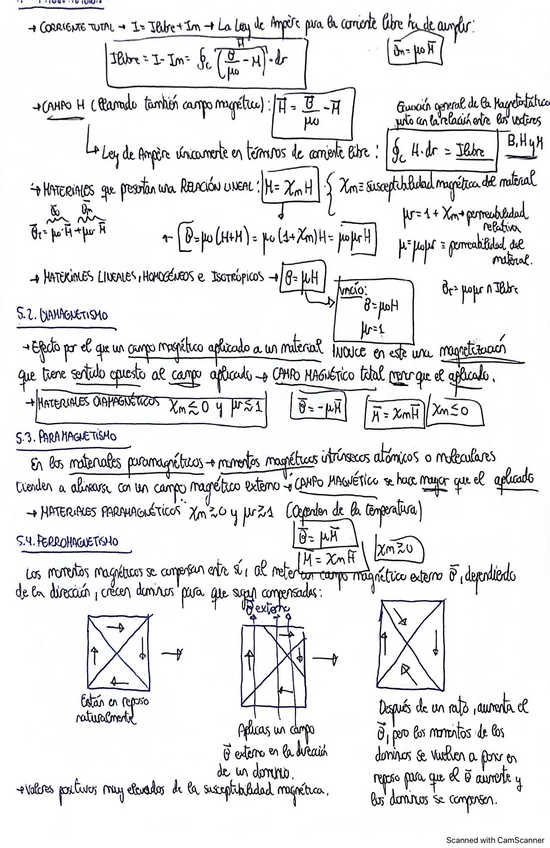 → CORRIENTE TOTAL → I = Ilibre + Im → La Ley de Ampère para la corriente libre ha de cumplir:
Ilibre = I - Im = ∮c (B/μ0 - M)·dr
H
Bm = μ0 M
→ CAMPO H (llamado también campo magnético): H = B/μ0 - M
Ecuación general de la Magnetostática junto con la relación entre los vectores B, H y M
↳ Ley de Ampère únicamente en términos de corriente libre: ∮c H·dr = Ilibre
→ MATERIALES que presentan una RELACIÓN LINEAL: M = Xm H { Xm ≡ susceptibilidad magnética del material
μr = 1 + Xm → permeabilidad relativa
← B = μ0 (H+M) = μ0 (1+Xm) H = μ0 μr H
μ = μ0 μr ≡ permeabilidad del material.
→ MATERIALES LINEALES, HOMOGÉNEOS e ISOTRÓPICOS → B = μH
Vacío:
B = μ0 H
μr = 1
Br = μ0 μr n Ilibre
5.2. DIAMAGNETISMO
→ Efecto por el que un campo magnético aplicado a un material INDUCE en este una magnetización
que tiene sentido opuesto al campo aplicado → CAMPO MAGNÉTICO total menor que el aplicado.
→ MATERIALES DIAMAGNÉTICOS Xm ≲ 0 y μr ≲ 1
B = -μH
M = Xm H
Xm ≤ 0
5.3. PARAMAGNETISMO
En los materiales paramagnéticos → momentos magnéticos intrínsecos atómicos o moleculares
tienden a alinearse con un campo magnético externo → CAMPO MAGNÉTICO se hace mayor que el aplicado
→ MATERIALES PARAMAGNÉTICOS Xm ≳ 0 y μr ≳ 1 (Dependen de la temperatura)
B = μH
M = Xm H
Xm ≳ 0
5.4. FERROMAGNETISMO
Los momentos magnéticos se compensan entre sí, al meter un campo magnético externo B, dependiendo
de la dirección, crecen dominios para que sigan compensadas:
B externo
Están en reposo
naturalmente
Aplicas un campo
B externo en la dirección
de un dominio.
Después de un rato, aumenta el
B, pero los momentos de los
dominios se vuelven a poner en
reposo para que el B aumente y
los dominios se compensen.
→ Valores positivos muy elevados de la susceptibilidad magnética.
Scanned with CamScanner